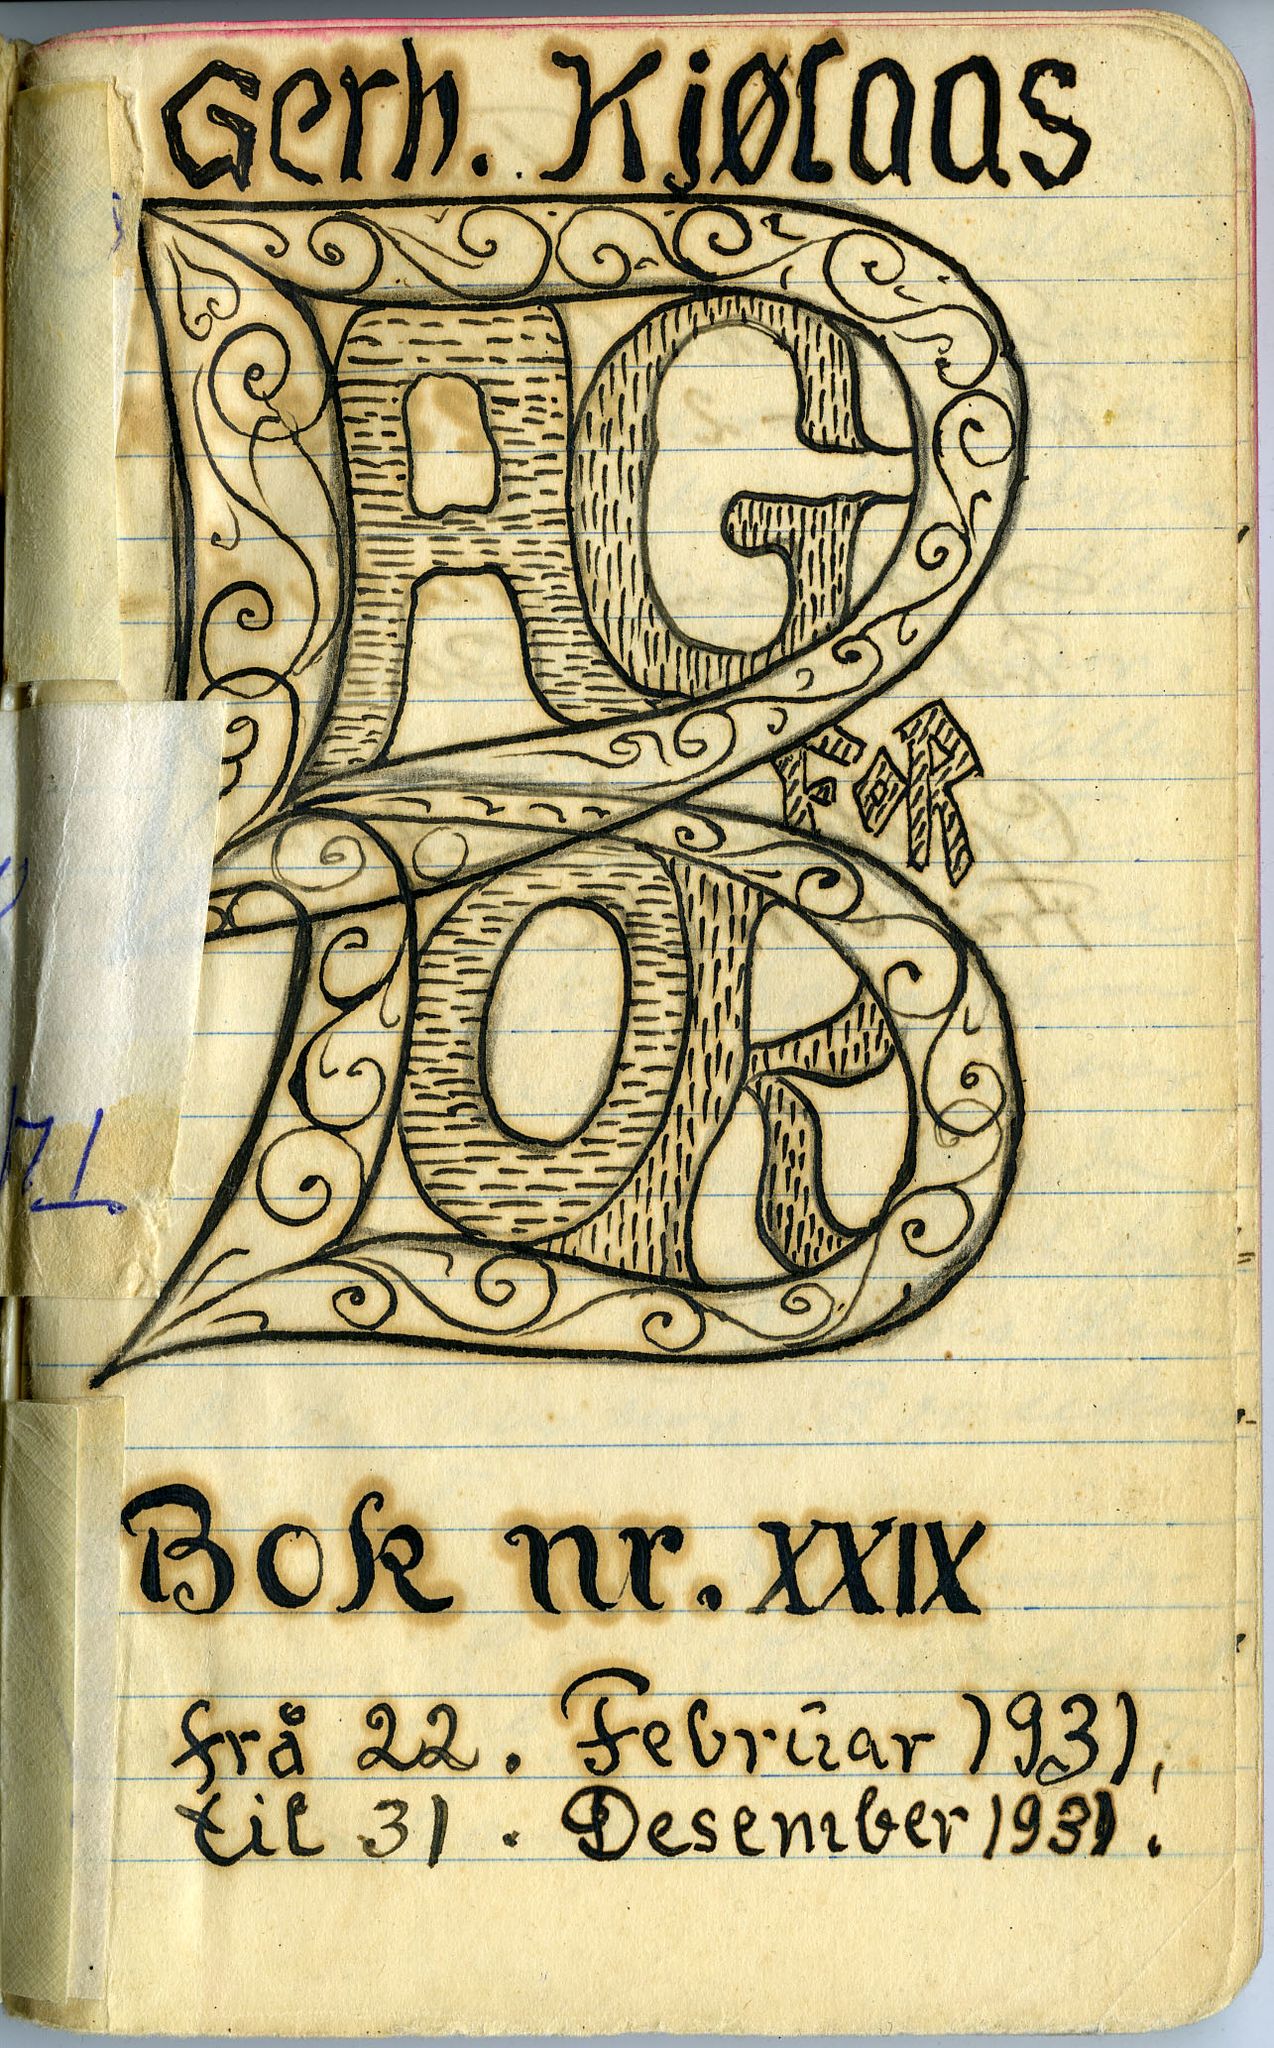 Gerh. Kjølaas
DAG
FOR
BOK
Bok nr. XXIX
frå 22. Februar 1931,
til 31. Desember 1931.